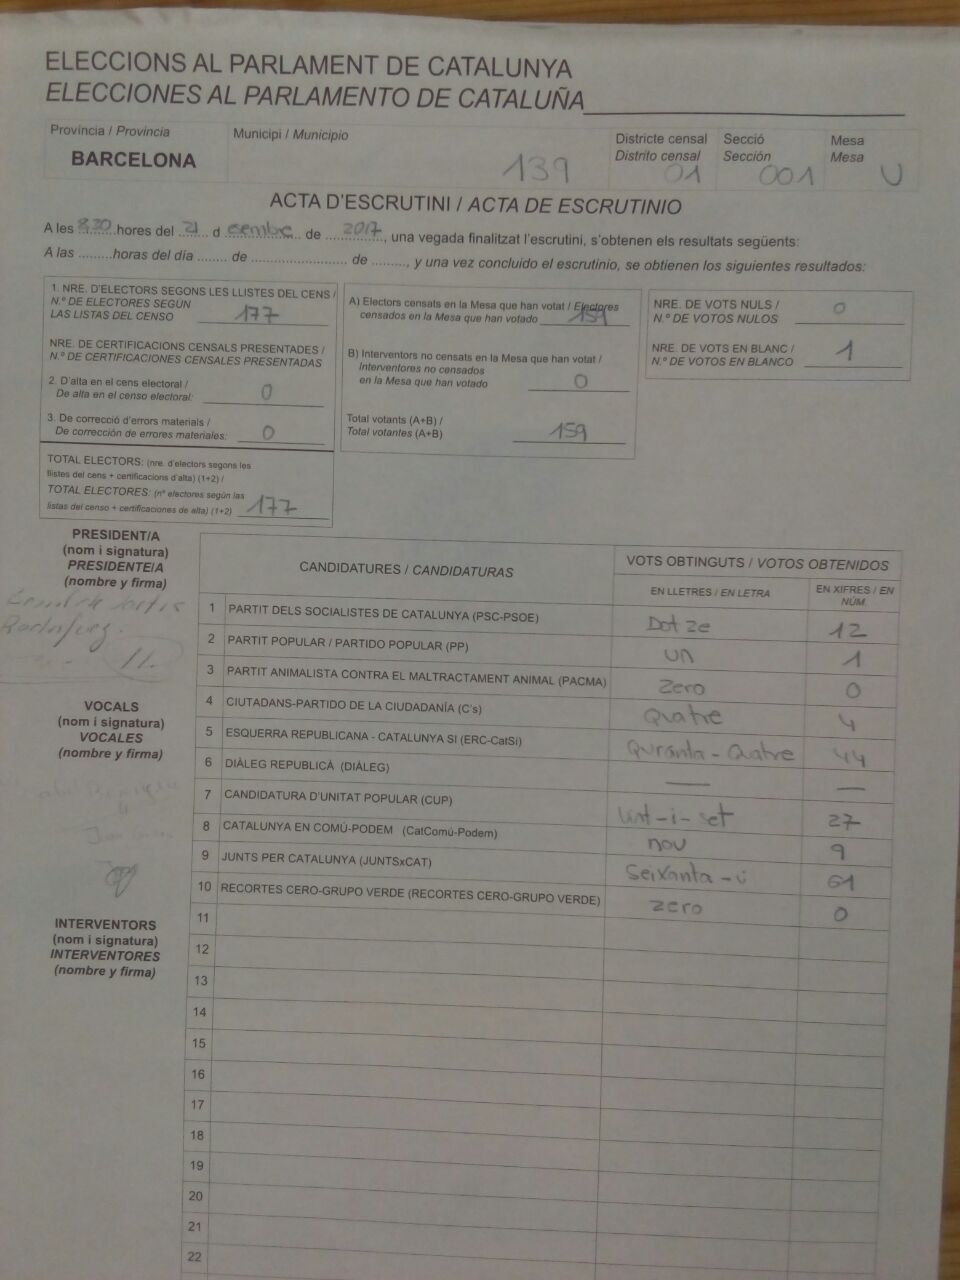 ELECCIONS AL PARLAMENT DE CATALUNYA
ELECCIONES AL PARLAMENTO DE CATALUÑA
Província / Provincia
BARCELONA
Municipi / Municipio
139
Districte censal
Distrito censal
01
Secció
Sección
001
Mesa
Mesa
U
ACTA D'ESCRUTINI / ACTA DE ESCRUTINIO
A les 8:30 hores del 21 d esembre de 2017, una vegada finalitzat l'escrutini, s'obtenen els resultats següents:
A las .........horas del día ........ de ........................ de ........., y una vez concluido el escrutinio, se obtienen los siguientes resultados:
1. NRE. D'ELECTORS SEGONS LES LLISTES DEL CENS /
N.º DE ELECTORES SEGÚN
LAS LISTAS DEL CENSO 177
NRE. DE CERTIFICACIONS CENSALS PRESENTADES /
N.º DE CERTIFICACIONES CENSALES PRESENTADAS
2. D'alta en el cens electoral /
De alta en el censo electoral: 0
3. De correcció d'errors materials /
De corrección de errores materiales: 0
TOTAL ELECTORS: (nre. d'electors segons les
llistes del cens + certificacions d'alta) (1+2) /
TOTAL ELECTORES: (nº electores según las
listas del censo + certificaciones de alta) (1+2) 177
A) Electors censats en la Mesa que han votat / Electores
censados en la Mesa que han votado 159
B) Interventors no censats en la Mesa que han votat /
Interventores no censados
en la Mesa que han votado 0
Total votants (A+B) /
Total votantes (A+B) 159
NRE. DE VOTS NULS /
N.º DE VOTOS NULOS 0
NRE. DE VOTS EN BLANC /
N.º DE VOTOS EN BLANCO 1
PRESIDENT/A
(nom i signatura)
PRESIDENTE/A
(nombre y firma)
VOCALS
(nom i signatura)
VOCALES
(nombre y firma)
INTERVENTORS
(nom i signatura)
INTERVENTORES
(nombre y firma)
CANDIDATURES / CANDIDATURAS
VOTS OBTINGUTS / VOTOS OBTENIDOS
EN LLETRES / EN LETRA
EN XIFRES / EN NÚM.
1 PARTIT DELS SOCIALISTES DE CATALUNYA (PSC-PSOE) Dotze 12
2 PARTIT POPULAR / PARTIDO POPULAR (PP) un 1
3 PARTIT ANIMALISTA CONTRA EL MALTRACTAMENT ANIMAL (PACMA) Zero 0
4 CIUTADANS-PARTIDO DE LA CIUDADANÍA (C's) Quatre 4
5 ESQUERRA REPUBLICANA - CATALUNYA SI (ERC-CatSí) Quranta-Quatre 44
6 DIÀLEG REPUBLICÀ (DIÀLEG) — —
7 CANDIDATURA D'UNITAT POPULAR (CUP) Vint-i-set 27
8 CATALUNYA EN COMÚ-PODEM (CatComú-Podem) nou 9
9 JUNTS PER CATALUNYA (JUNTSxCAT) Seixanta-ú 61
10 RECORTES CERO-GRUPO VERDE (RECORTES CERO-GRUPO VERDE) zero 0
11
12
13
14
15
16
17
18
19
20
21
22